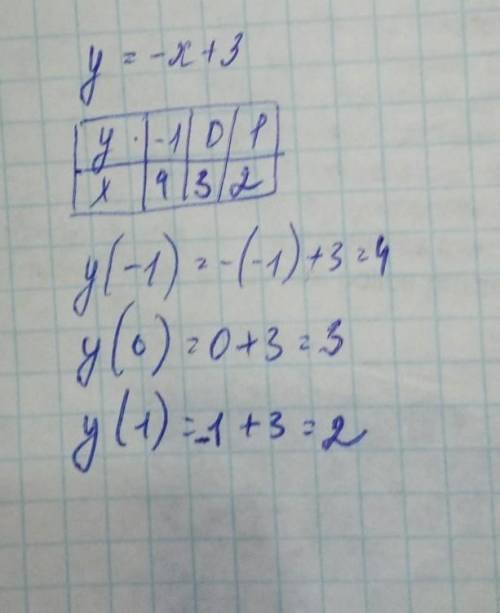 y = -x + 3
y -1 0 1
x 4 3 2
y(-1) = -(-1) + 3 = 4
y(0) = 0 + 3 = 3
y(1) = -1 + 3 = 2